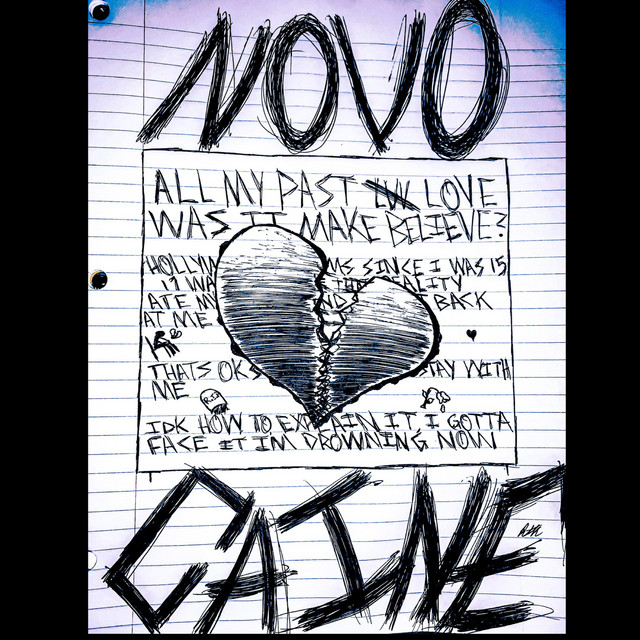 NOVO
ALL MY PAST LOVE
WAS IT MAKE BELIEVE?
SINCE I WAS 15
WA
ATE MY BACK
AT ME
THATS OK STAY WITH
ME
R.I.P
IDK HOW TO EXPLAIN IT, I GOTTA
FACE IT IM DROWNING NOW
CAINE